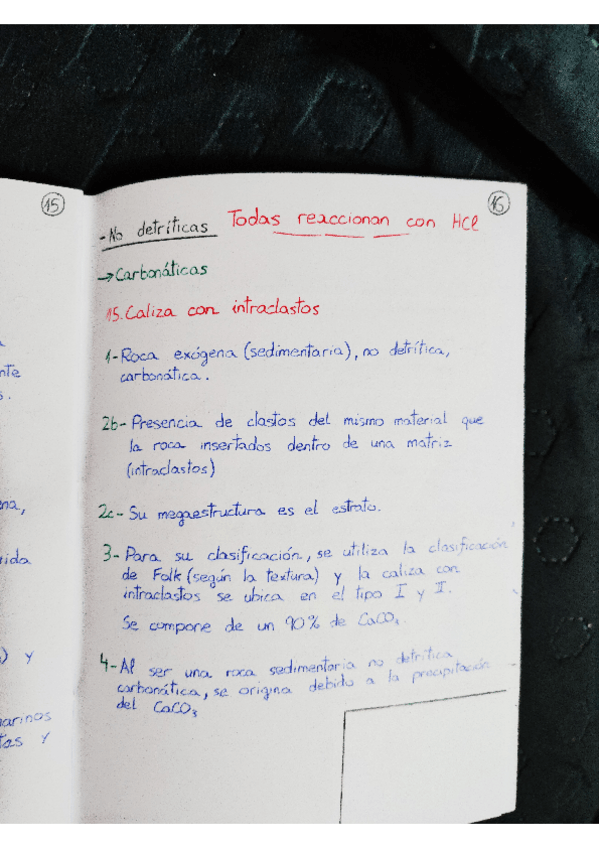 15
a
nte
s.
ena,
rida
) y
narinos
tas y
16
- No detríticas Todas reaccionan con HCl
→ Carbonáticas
15. Caliza con intraclastos
1- Roca exógena (sedimentaria), no detrítica,
carbonática.
2b- Presencia de clastos del mismo material que
la roca insertados dentro de una matriz
(intraclastos)
2c- Su megaestructura es el estrato.
3- Para su clasificación, se utiliza la clasificación
de Folk (según la textura) y la caliza con
intraclastos se ubica en el tipo I y II.
Se compone de un 90% de CaCO3.
4- Al ser una roca sedimentaria no detrítica
carbonática, se origina debido a la precipitación
del CaCO3